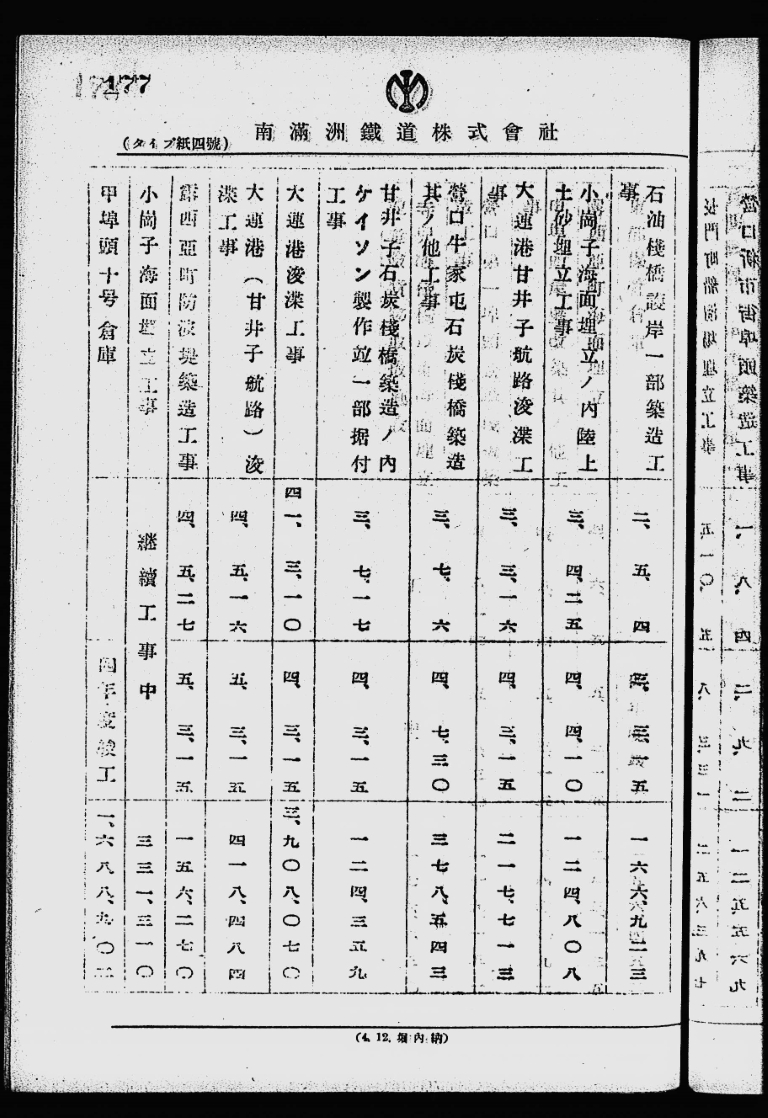 177
南滿洲鐵道株式會社
(タイプ紙四號)
營口新市街埠頭築造工事
一、八、四
二、九、二
一二五五六九
埋立工事
二五六、三九七
石油棧橋護岸一部築造工
事
二、五、四
三、三、一五
一六六、九二三
小崗子海面埋立ノ內陸上
土砂埋立工事
三、四、二五
四、四、一〇
一二四、八〇八
大連港甘井子航路浚渫工
事
三、三、一六
四、三、一五
二一七、七一三
營口牛家屯石炭棧橋築造
其ノ他工事
三、七、六
四、七、三〇
三七八、五四三
甘井子石炭棧橋築造ノ內
ケイソン製作竝一部据付
工事
三、七、一七
四、三、一五
一二四、三五九
大連港浚渫工事
四一、三、一〇
四、三、一五
三、九〇八、〇七〇
大連港(甘井子航路)浚
渫工事
四、五、一六
五、三、一五
四一八、四八四
露西亞町防波堤築造工事
四、五、二七
五、三、一五
一五六、二七〇
小崗子海面埋立工事
継續工事中
三三一、三一〇
甲埠頭十号倉庫
四年度竣工
一、六八八、九〇二
(4. 12. 堀內納)